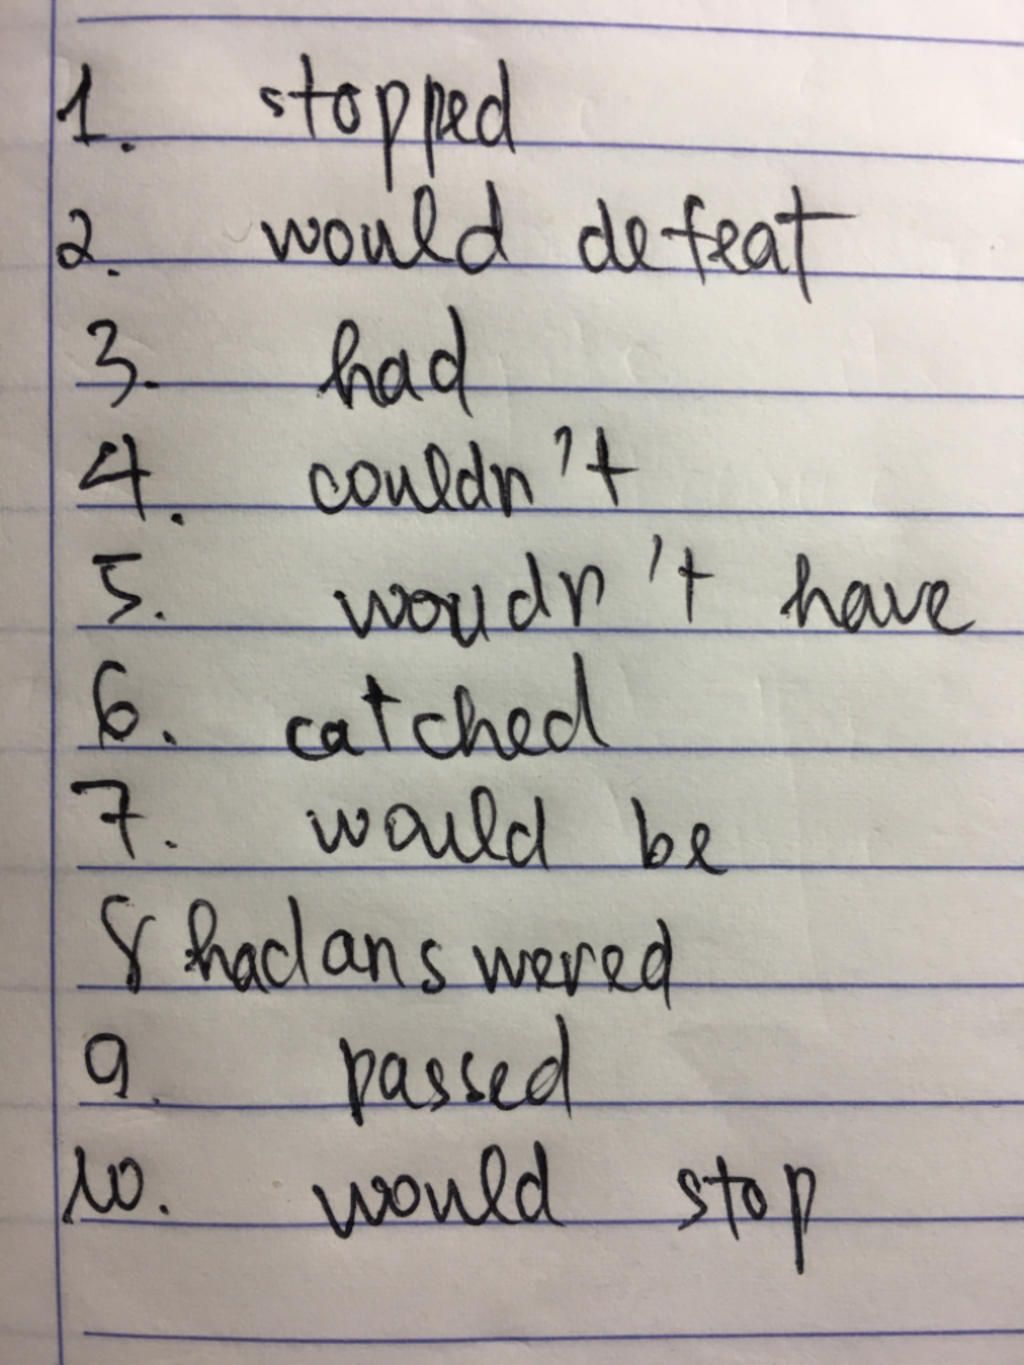 1. stopped
2. would defeat
3. had
4. couldn't
5. woudn't have
6. catched
7. would be
8 had answered
9. passed
10. would stop